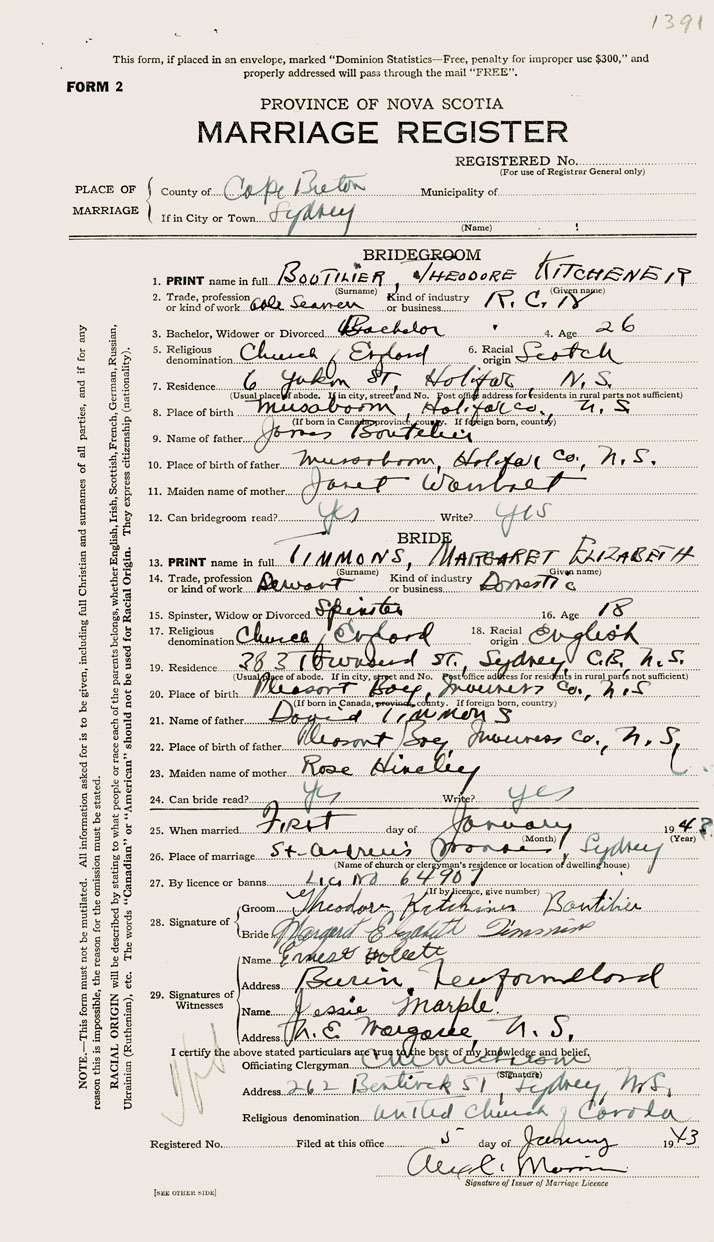 1391
This form, if placed in an envelope, marked "Dominion Statistics—Free, penalty for improper use $300," and
properly addressed will pass through the mail "FREE".
FORM 2
PROVINCE OF NOVA SCOTIA
MARRIAGE REGISTER
REGISTERED No.
(For use of Registrar General only)
PLACE OF MARRIAGE
County of Cape Breton Municipality of
If in City or Town Sydney
(Name)
BRIDEGROOM
1. PRINT name in full BOUTILIER, THEODORE KITCHENER
(Surname) (Given name)
2. Trade, profession or kind of work Able Seaman Kind of industry or business R.C.N
3. Bachelor, Widower or Divorced Bachelor 4. Age 26
5. Religious denomination Church of England 6. Racial origin Scotch
7. Residence 6 Yukon St, Halifax, N.S.
(Usual place of abode. If in city, street and No. Post office address for residents in rural parts not sufficient)
8. Place of birth Halifax Co., N.S.
(If born in Canada, province, county. If foreign born, country)
9. Name of father James Boutilier
10. Place of birth of father Halifax Co., N.S.
11. Maiden name of mother Janet
12. Can bridegroom read? Yes Write? Yes
BRIDE
13. PRINT name in full TIMMONS, MARGARET ELIZABETH
(Surname) (Given name)
14. Trade, profession or kind of work Servant Kind of industry or business Domestic
15. Spinster, Widow or Divorced Spinster 16. Age 18
17. Religious denomination Church of England 18. Racial origin English
19. Residence 383 Townsend St., Sydney, C.B., N.S.
(Usual place of abode. If in city, street and No. Post office address for residents in rural parts not sufficient)
20. Place of birth Pleasant Bay, Inverness Co., N.S
(If born in Canada, province, county. If foreign born, country)
21. Name of father David Timmons
22. Place of birth of father Pleasant Bay, Inverness Co., N.S.
23. Maiden name of mother Rose Hinkley
24. Can bride read? Yes Write? yes
25. When married First day of January 1943
(Month) (Year)
26. Place of marriage St. Andrew's Manse, Sydney
(Name of church or clergyman's residence or location of dwelling house)
27. By licence or banns Lic. No 64907
(If by licence, give number)
28. Signature of
Groom Theodore Kitchener Boutilier
Bride Margaret Elizabeth Timmons
29. Signatures of Witnesses
Name Ernest
Address Burin, Newfoundland
Name Jessie Marple.
Address N.E. Margaree, N.S.
I certify the above stated particulars are true to the best of my knowledge and belief.
Officiating Clergyman
(Signature)
Address 262 Bentinck St, Sydney, N.S.
Religious denomination United Church of Canada
Registered No. Filed at this office 5 day of January 1943
Signature of Issuer of Marriage Licence
[SEE OTHER SIDE]
NOTE.—This form must not be mutilated. All information asked for is to be given, including full Christian and surnames of all parties, and if for any
reason this is impossible, the reason for the omission must be stated.
RACIAL ORIGIN will be described by stating to what people or race each of the parents belongs, whether English, Irish, Scottish, French, German, Russian,
Ukrainian (Ruthenian), etc. The words "Canadian" or "American" should not be used for Racial Origin. They express citizenship (nationality).